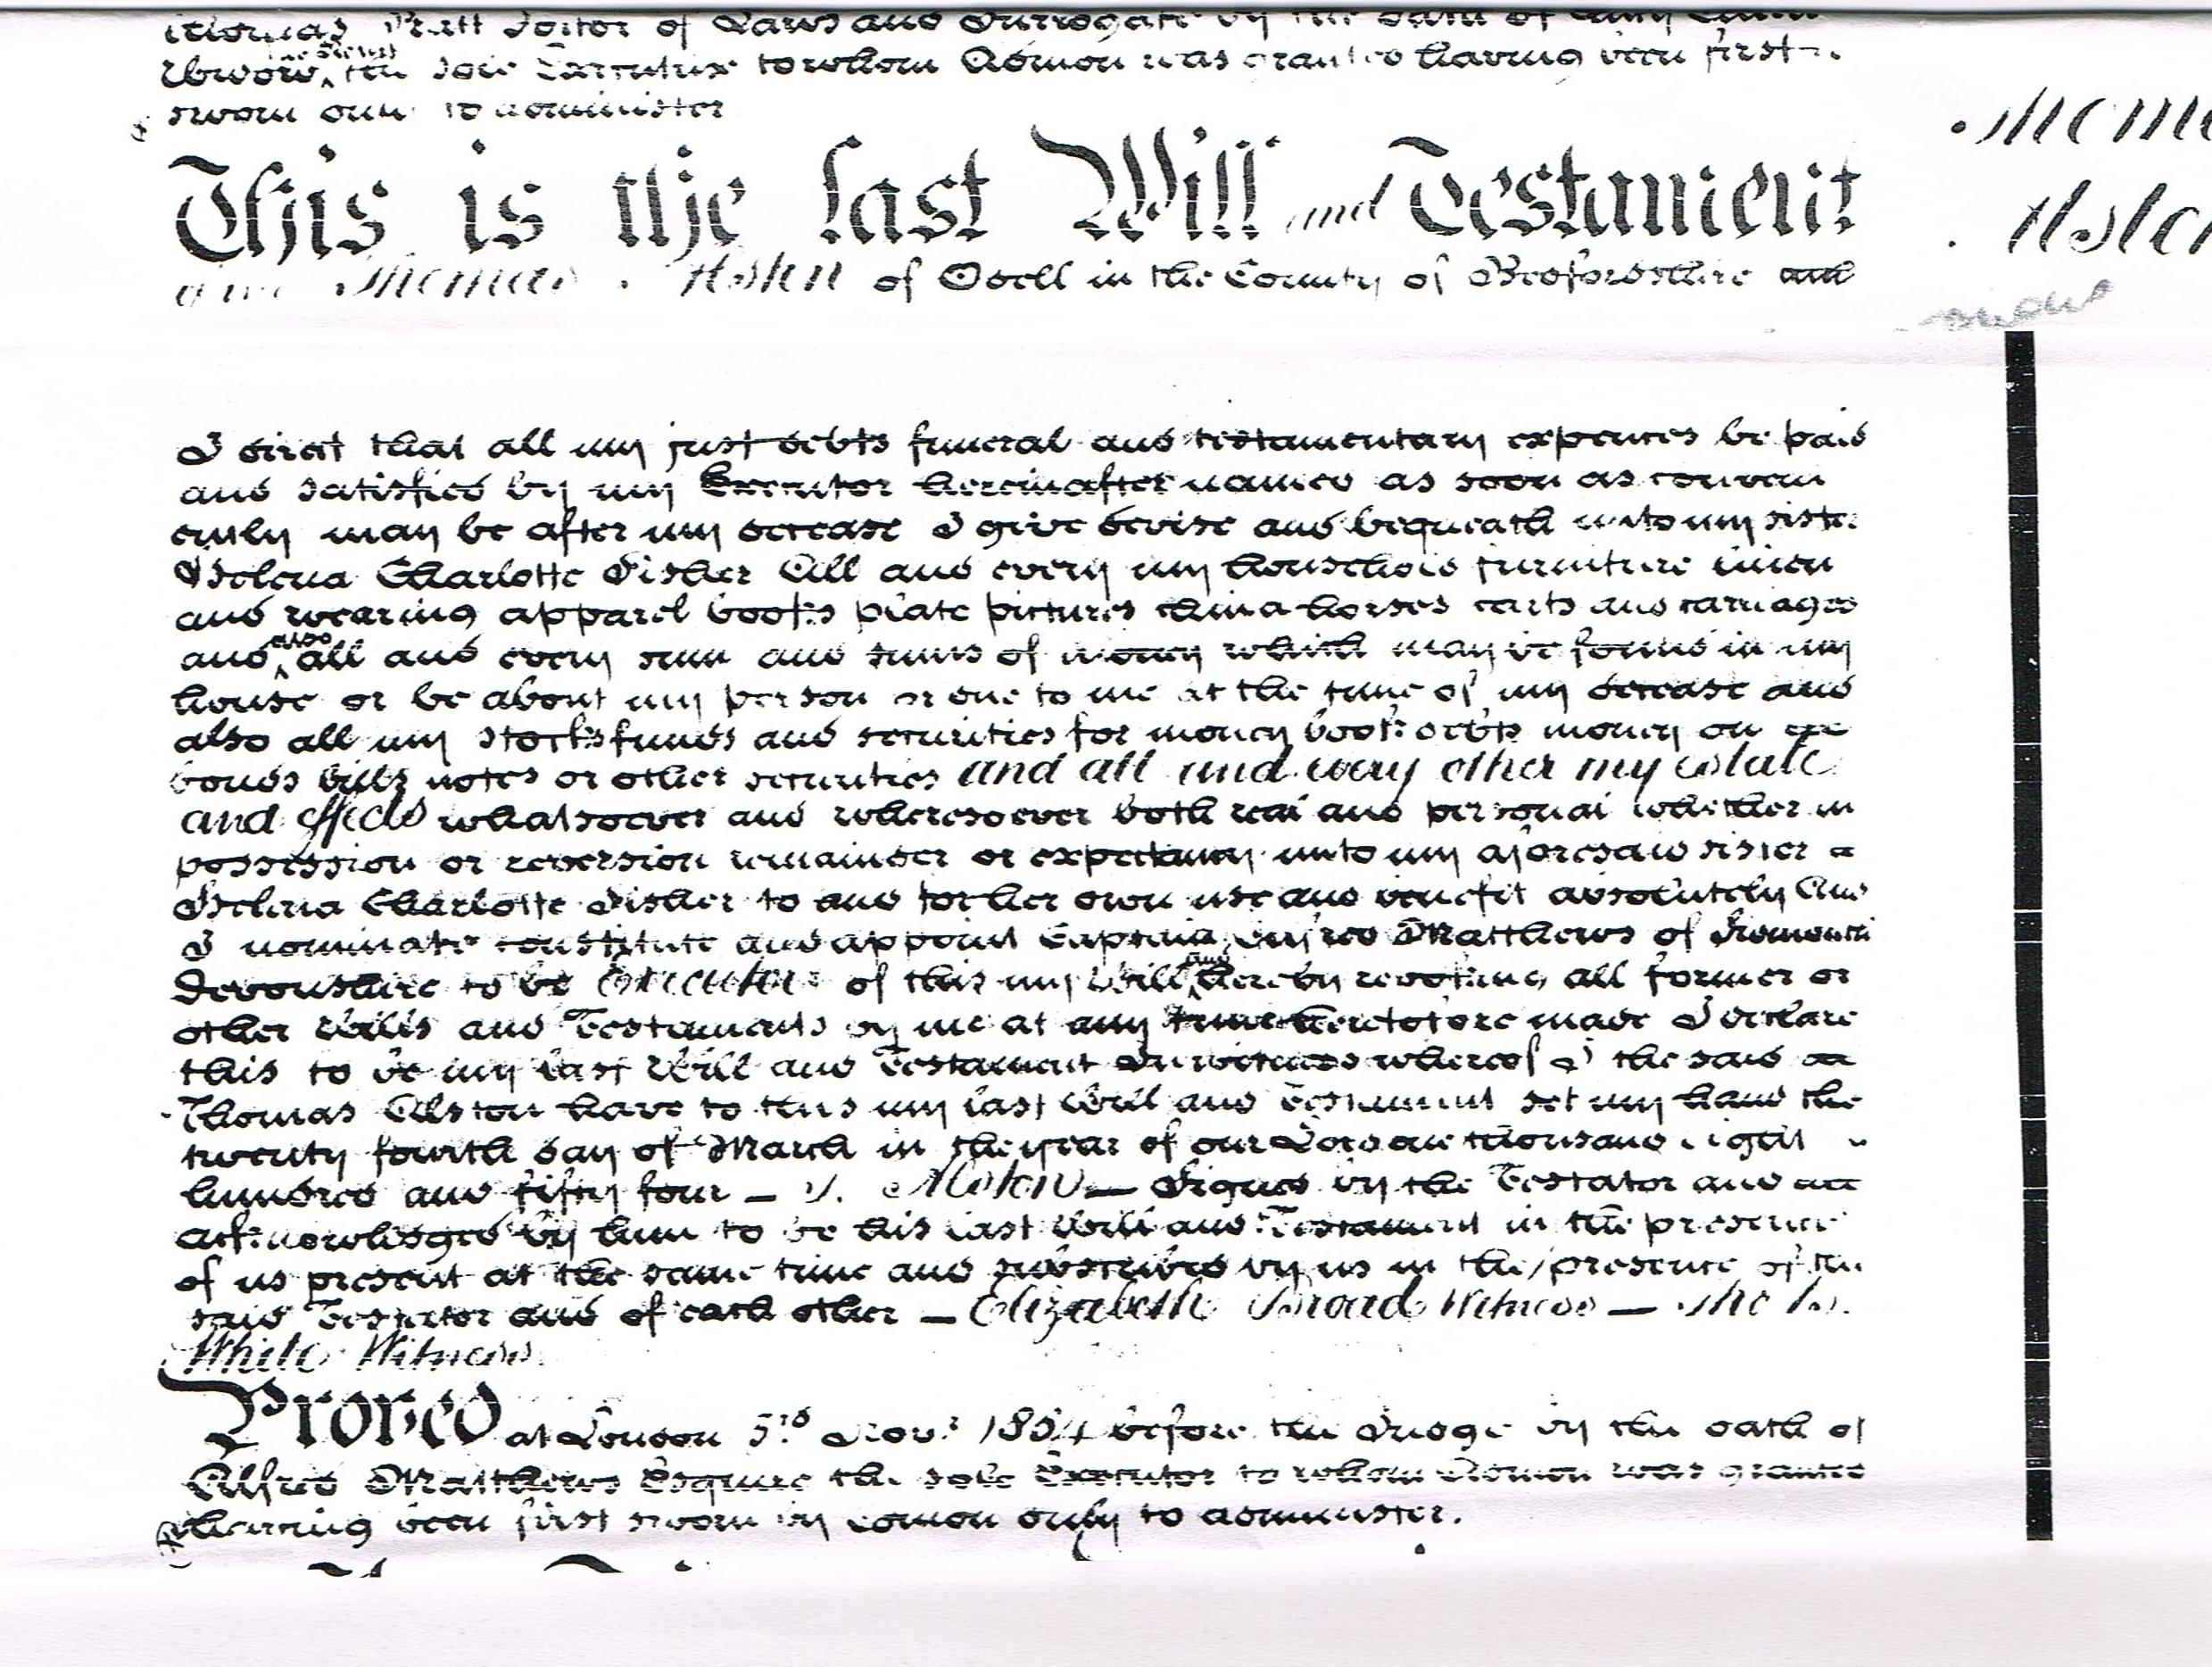 Thomas Pratt Doctor of Laws and Surrogate by the Oath of
the sole Executrix to whom Admon was granted having been first
sworn duly to administer
This is the last Will and Testament
of me Thomas Alston of Odell in the County of Bedfordshire
Thomas
Alston
I direct that all my just debts funeral and testamentary expences be paid
and satisfied by my Executor hereinafter named as soon as conveni
ently may be after my decease I give devise and bequeath unto my sister
Selena Charlotte Fisher All and every my household furniture linen
and wearing apparel books plate pictures china horses carts and carriages
and also all and every sum and sums of money which may be found in my
house or be about my person or due to me at the time of my decease and
also all my stocks funds and securities for money book debts money on
bonds bills notes or other securities and all and every other my estate
and effects whatsoever and wheresoever both real and personal whether in
possession or reversion remainder or expectancy unto my aforesaid sister
Selena Charlotte Fisher to and for her own use and benefit absolutely And
I nominate constitute and appoint Captain Alfred Matthews of
Devonshire to be Executor of this my Will and hereby revoking all former or
other Wills and Testaments by me at any time heretofore made I declare
this to be my last Will and Testament In witness whereof I the said
Thomas Alston have to this my last Will and Testament set my hand the
twenty fourth day of March in the year of our Lord one thousand eight
hundred and fifty four – T. Alston – Signed by the Testator and
acknowledged by him to be his last Will and Testament in the presence
of us present at the same time and subscribed by us in the presence of the
said Testator and of each other – Elizabeth Broad Witness –
White Witness.
Proved at London 3rd Novr 1854 before the Judge by the oath of
Alfred Matthews Esquire the sole Executor to whom Admon was granted
having been first sworn by comon only to administer.